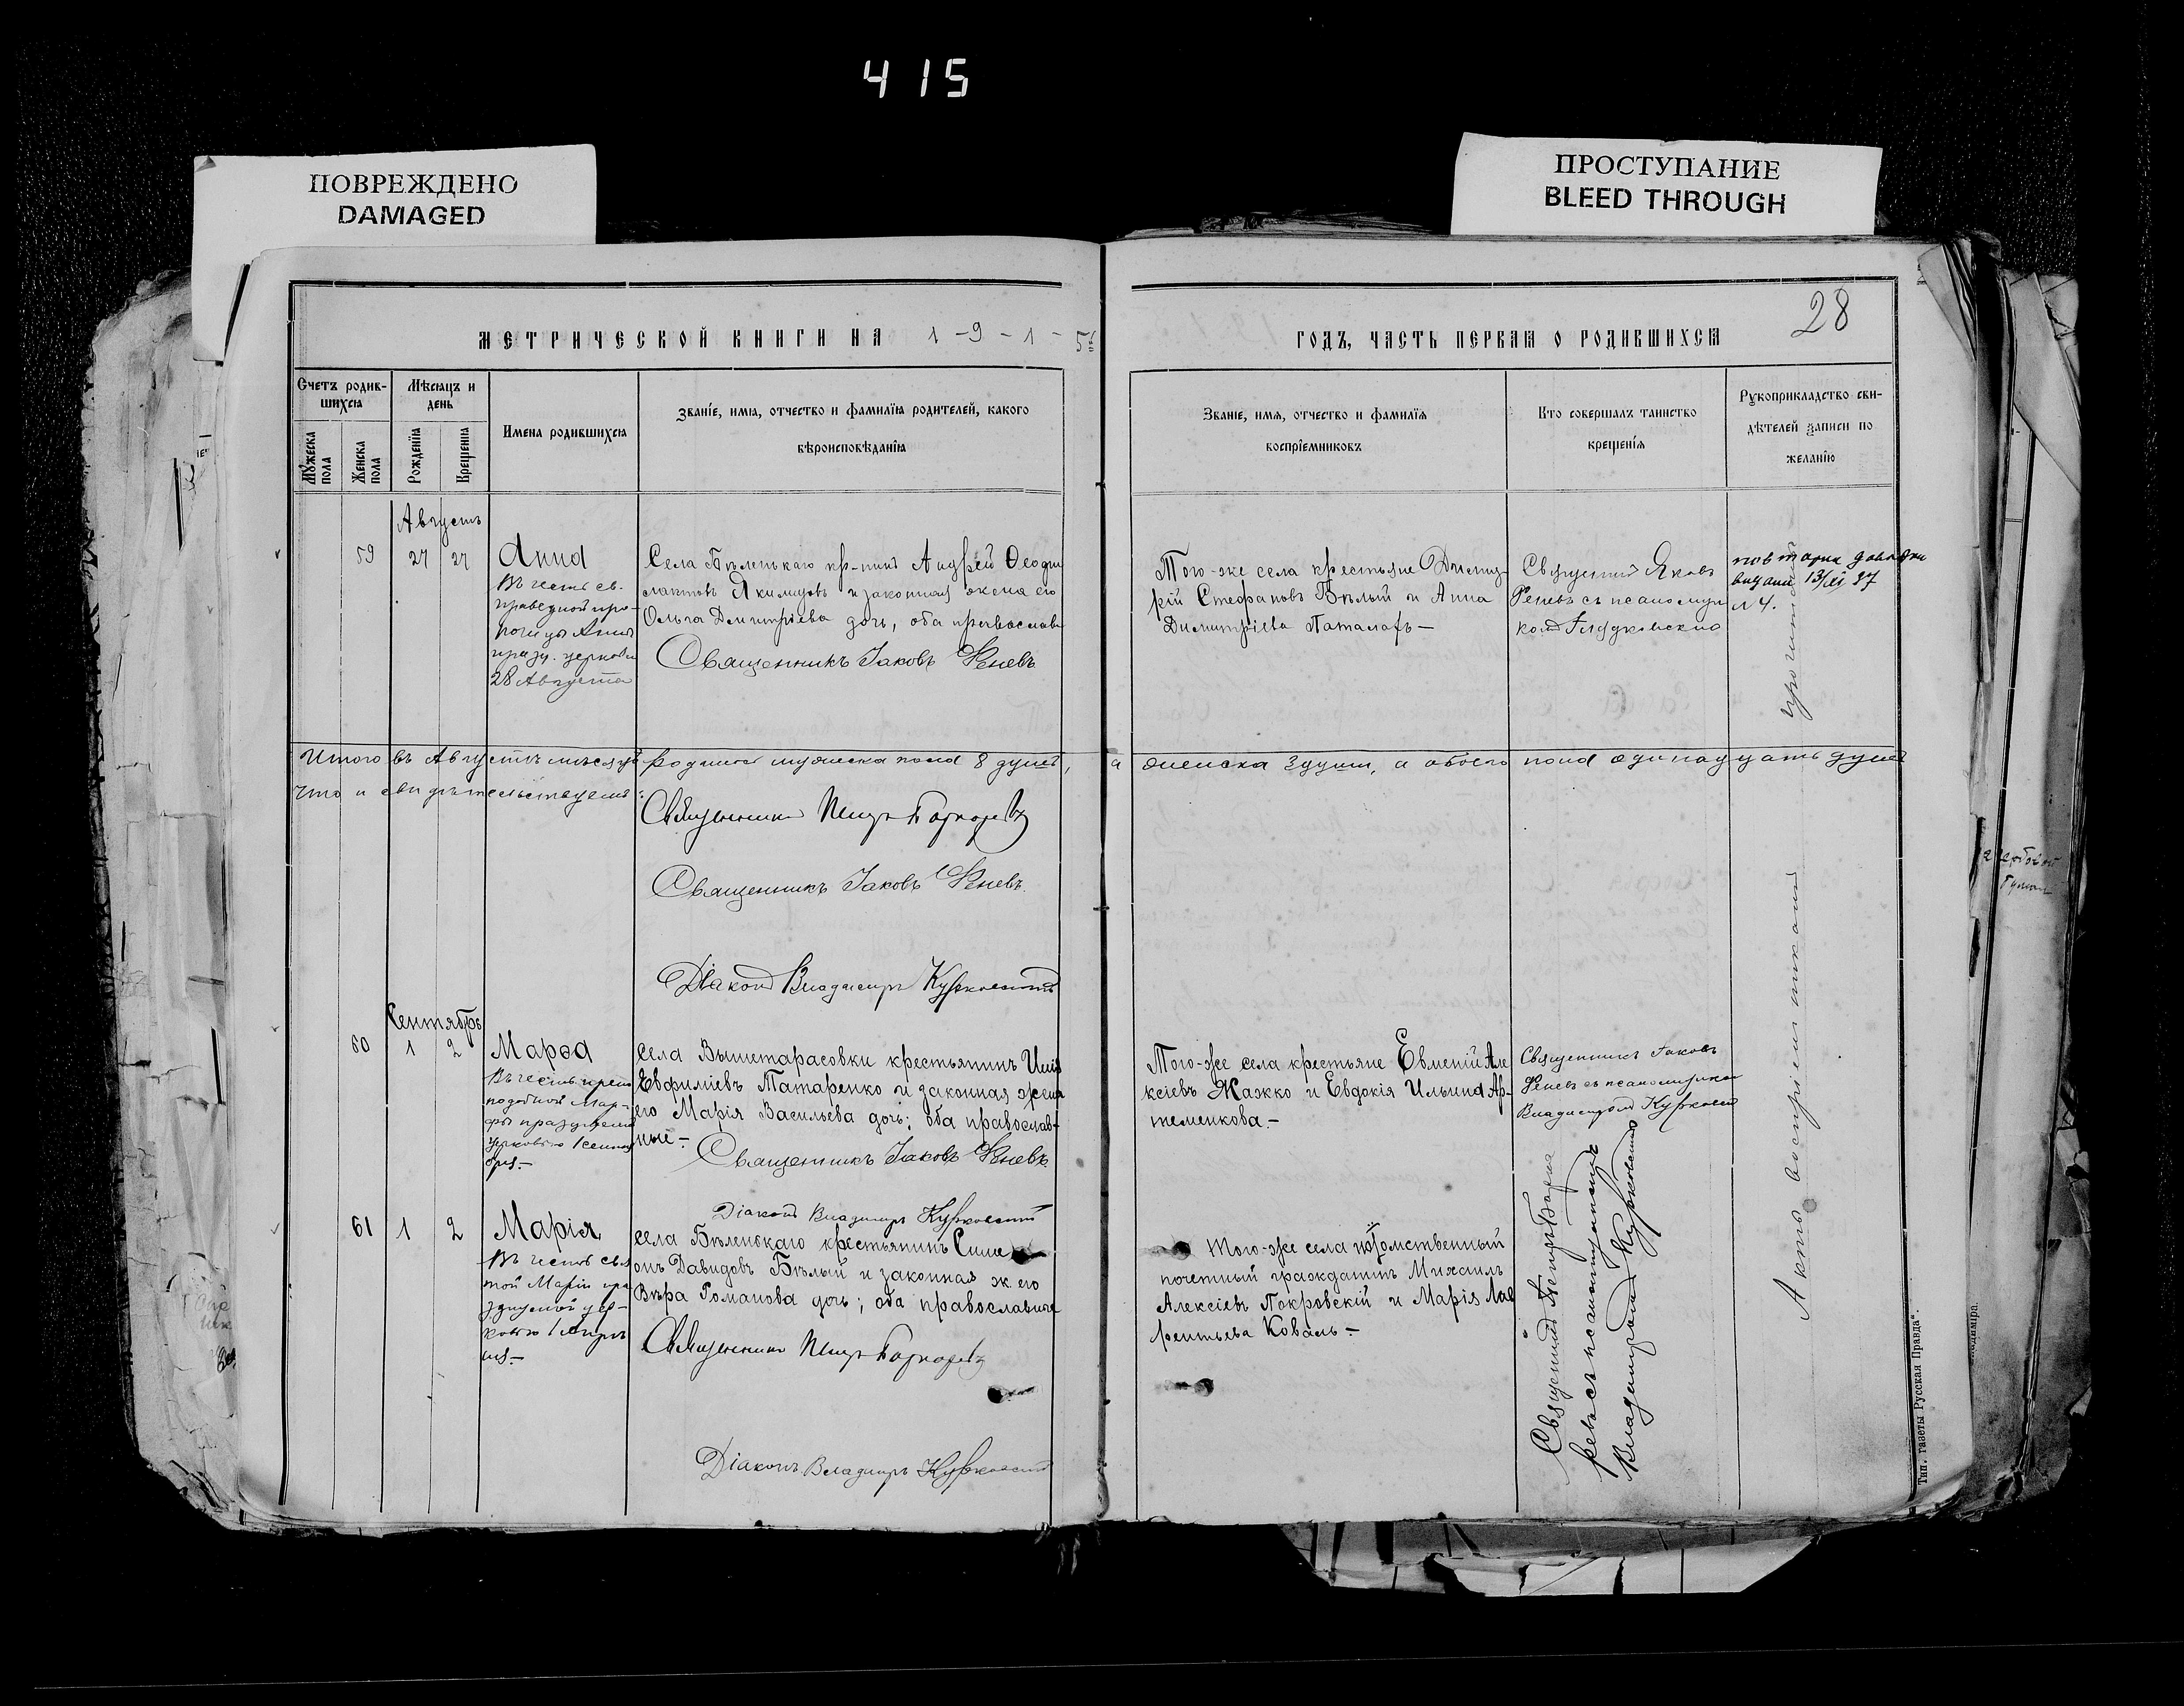 415
ПОВРЕЖДЕНО
DAMAGED
ПРОСТУПАНИЕ
BLEED THROUGH
МЕТРИЧЕСКОЙ КНИГИ НА 1-9-1-5
ГОДЪ, ЧАСТЬ ПЕРВАЯ О РОДИВШИХСЯ
28
Счетъ родив-
шихся
Мужеска пола
Женска пола
Мѣсяцъ и
день
Рожденїя
Крещенїя
Имена родившихся
Званїе, имя, отчество и фамилїя родителей, какого
вѣроисповѣданїя
Званїе, имя, отчество и фамилїя
воспрїемниковъ
Кто совершалъ таинство
крещенїя
Рукоприкладство сви-
дѣтелей записи по
желанїю
Августъ
59 27 27 Анна
Въ честь св.
праведной про-
рочицы Анны
празд. церковью
28 Августа
Села Бѣленькаго кр-нинъ Андрей Ѳеофи
лактовъ Якимцовъ и законная жена его
Ольга Дмитріева дочь, оба православн
Священникъ Іаковъ Реневъ
Того-же села крестьяне Димит-
рій Стефановъ Бѣлый и Анна
Димитріева Паталахъ —
Священник Яковъ
Реневъ съ псаломщи
комъ
выдана 13/XI 27
№ 4.
Итого въ Августѣ мѣсяцѣ родилось мужеска пола 8 душъ, а женска 3 души, а обоего пола одинадцать душъ
Что и свидѣтельствуемъ:
Священникъ Петръ
Священникъ Іаковъ Реневъ
Діаконъ Владиміръ Курковскій
Сентябрь
60 1 2 Марѳа
Въ честь препо
подобной Мар-
фы празднуемой
церковью 1 сентя
бря.—
Села Вышетарасовки крестьянинъ
Евфиміевъ Татаренко и законная жена
его Марія Васильева дочь; оба православ-
ные.—
Священникъ Іаковъ Реневъ
Діаконъ Владиміръ Курковскій
Того-же села крестьяне Евменій Але
ксіевъ Мажко и Евдокія Ильина Ар-
теменкова.—
Священникъ Іаковъ
Реневъ съ псаломщикомъ
Владиміромъ Курковск
61 1 2 Марія
Въ честь свя
той Маріи пра
зднуемой цер-
ковью 1 Апрѣ
ля.—
Села Бѣленскаго крестьянинъ Симе
онъ Давидовъ Бѣлый и законная ж. его
Вѣра Романова дочь; оба православные
Священникъ Петръ
Діаконъ Владиміръ Курковскій
Того-же села потомственный
почетный гражданинъ Михаилъ
Алексіевъ Покровскій и Марія Лав
рентьева Коваль.—
Священникъ Петръ
ревъ съ псаломщикомъ
Владиміромъ Курковскимъ
Актъ воспріемникамъ прочитанъ
Тип. газеты „Русская Правда“.